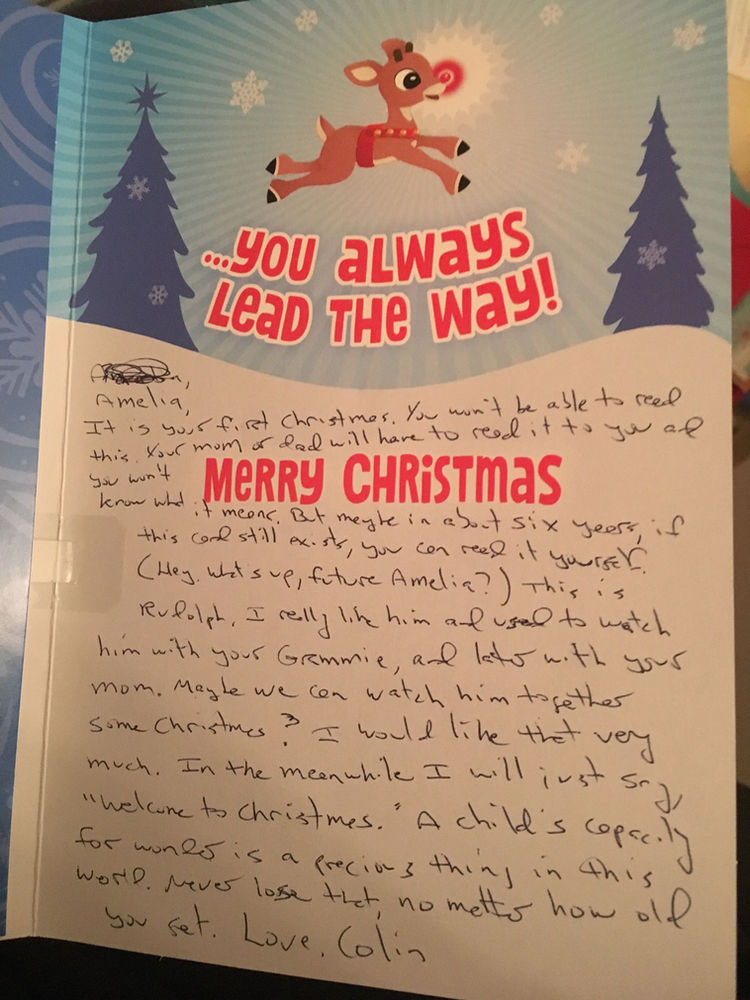 ...YOU ALWAYS
LEAD THE WAY!
Amelia,
It is your first Christmas. You won't be able to read
this. Your mom or dad will have to read it to you and
you won't
MERRY CHRISTMAS
know what it means. But maybe in about six years, if
this card still exists, you can read it yourself.
(Hey. What's up, future Amelia?) This is
Rudolph. I really like him and used to watch
him with your Grammie, and later with your
mom. Maybe we can watch him together
some Christmas? I would like that very
much. In the meanwhile I will just say,
"Welcome to Christmas." A child's capacity
for wonder is a precious thing in this
world. Never lose that, no matter how old
you get. Love, Colin